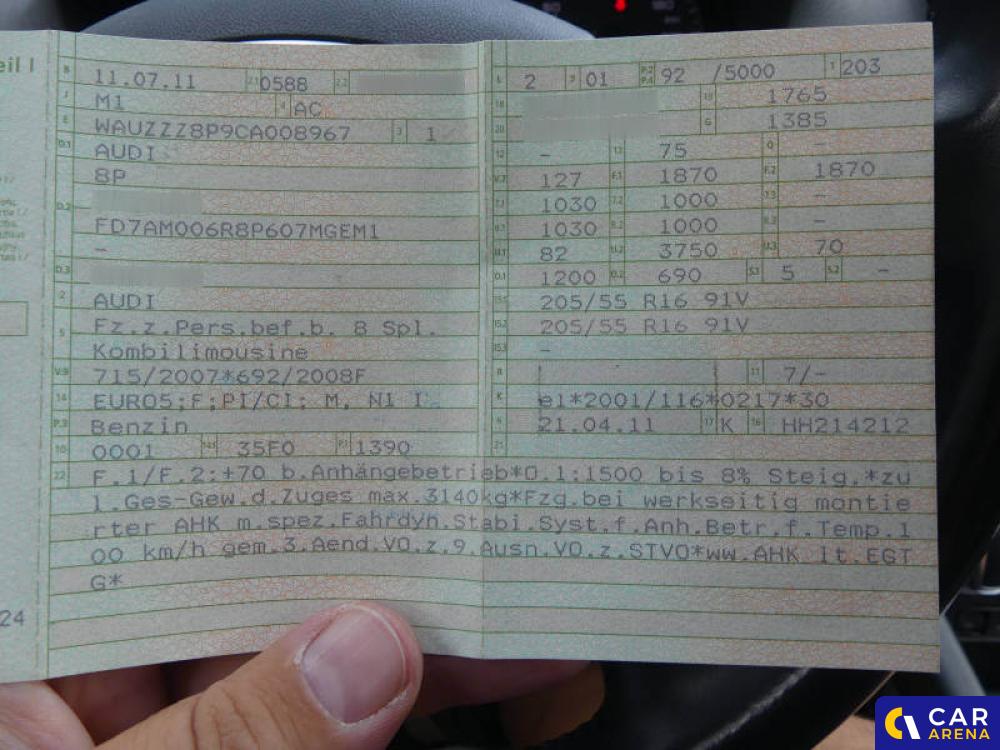 eil I
B 11.07.11 2.1 0588 2.2
J M1 4 AC
E WAUZZZ8P9CA008967 3 1
D.1 AUDI
8P
D.2
FD7AM006R8P607MGEM1
-
D.3
2 AUDI
5 Fz.z.Pers.bef.b. 8 Spl.
Kombilimousine
V.9 715/2007*692/2008F
14 EURO5;F;PI/CI; M, N1 I
P.3 Benzin
10 0001 14.1 35F0 P.1 1390
L 2 9 01 P.2 P.4 92 /5000 T 203
18 19 1765
20 G 1385
12 - 13 75 Q -
V.7 127 F.1 1870 F.2 1870
7.1 1030 7.2 1000 7.3 -
8.1 1030 8.2 1000 8.3 -
U.1 82 U.2 3750 U.3 70
O.1 1200 O.2 690 S.1 5 S.2 -
15.1 205/55 R16 91V
15.2 205/55 R16 91V
15.3 -
R 11 7/-
K e1*2001/116*0217*30
6 21.04.11 17 K 16 HH214212
21
22 F.1/F.2:+70 b.Anhängebetrieb*O.1:1500 bis 8% Steig.*zu
l.Ges-Gew.d.Zuges max.3140kg*Fzg.bei werkseitig montie
rter AHK m.spez.Fahrdyn.Stabi.Syst.f.Anh.Betr.f.Temp.1
00 km/h gem.3.Aend.VO.z.9.Ausn.VO.z.STVO*ww.AHK lt.EGT
G*
24
CAR
ARENA